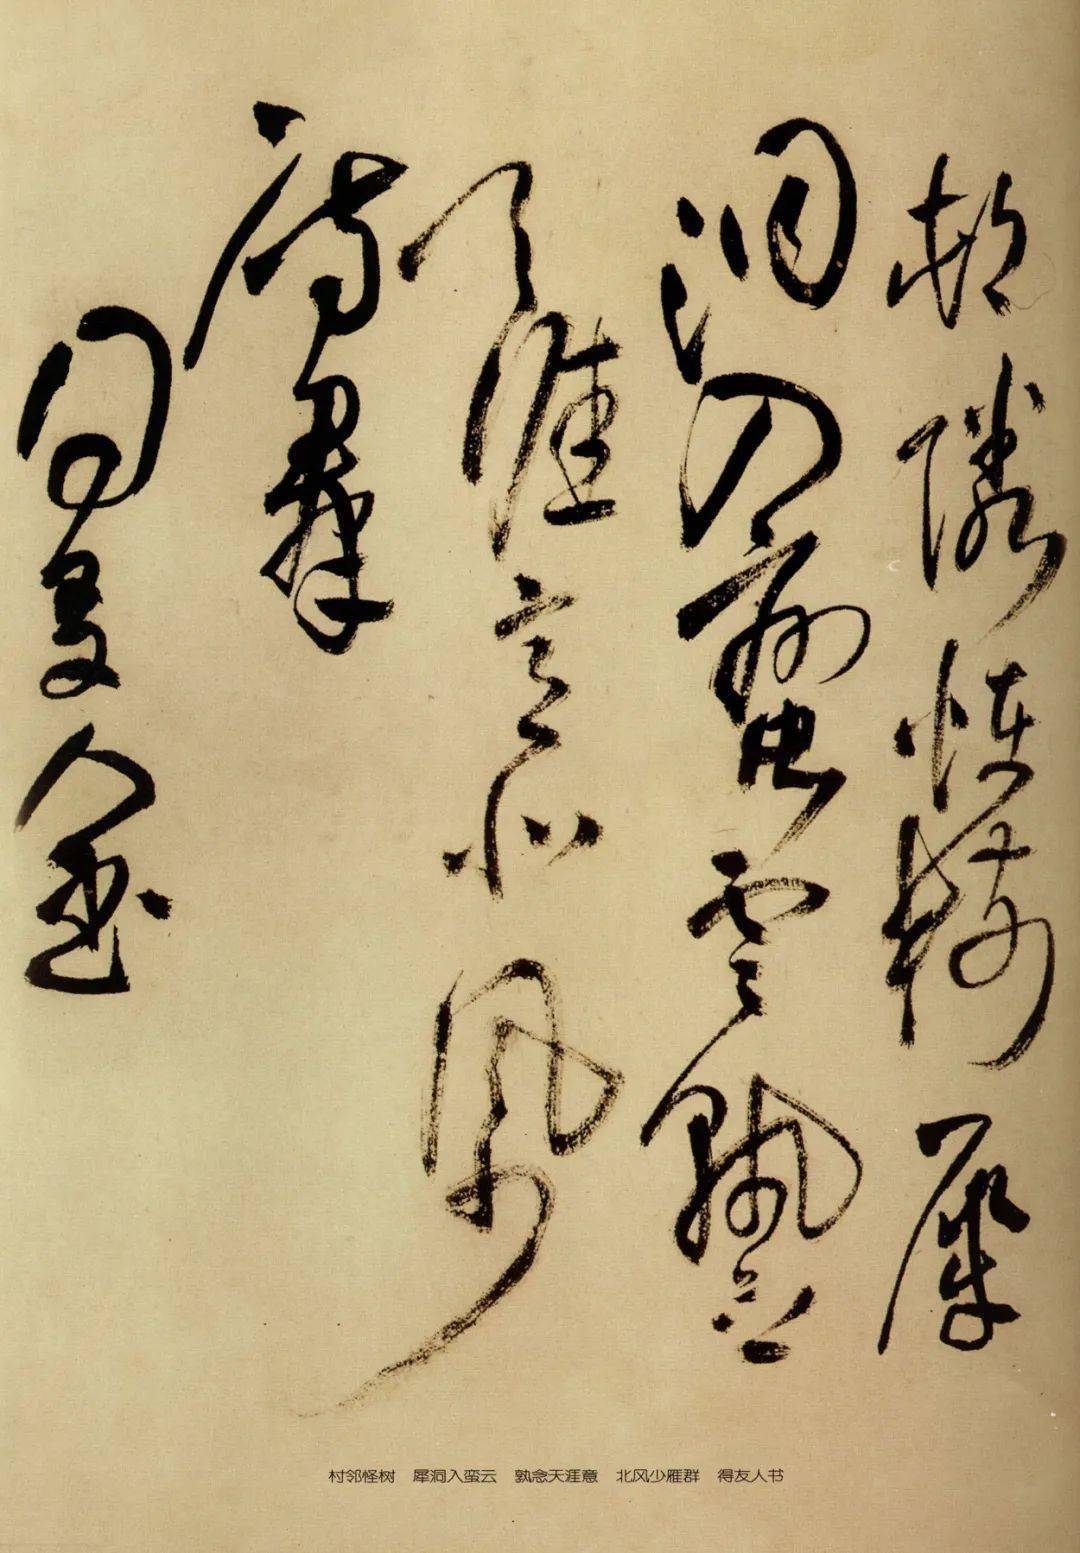 村隣怪樹犀
洞入蠻雲孰念
天涯意北風少
鴈羣
友人書
村邻怪树 犀洞入蛮云 孰念天涯意 北风少雁群 得友人书